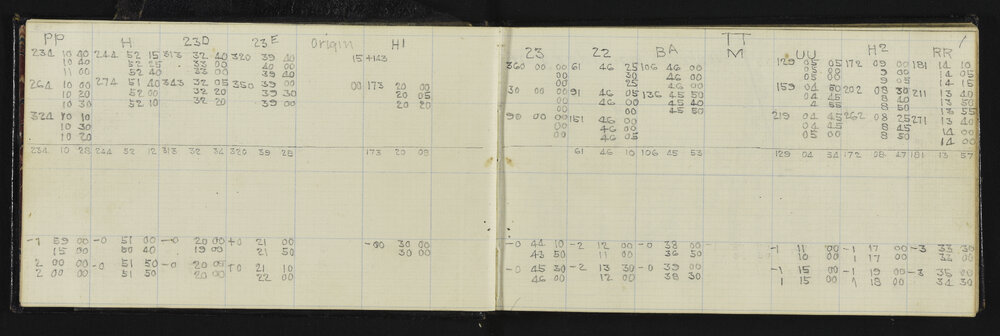 PP H 23D 23E Origin H1
234 10 40 244 52 15 313 32 40 320 39 40 15 +143
10 40 52 25 33 00 40 00
11 00 52 40 33 00 39 40
264 10 00 274 51 40 343 32 05 350 39 30 00 173 20 00
10 20 52 00 32 20 39 30 20 05
10 30 52 10 32 20 39 00 20 20
324 10 10
10 30
10 20
234 10 28 244 52 12 313 32 34 320 39 28 173 20 08
-1 59 00 -0 51 00 -0 20 00 +0 21 00 -00 30 00
15 00 50 40 19 00 21 50 30 00
2 00 00 -0 51 50 -0 20 00 +0 21 10
2 00 00 51 30 20 00 22 00
TT /
23 22 BA M UU H2 RR
360 00 00 61 46 25 106 46 00 129 05 05 172 09 00 181 14 10
00 30 46 00 05 88 9 00 14 05
00 25 46 00 9 05 14 15
30 00 00 91 46 05 136 45 50 159 04 50 202 08 30 211 13 40
00 46 00 45 40 04 45 8 40 13 50
00 45 50 4 55 8 50 13 55
90 00 00 151 46 00 219 04 45 262 08 25 271 13 40
00 46 00 04 45 8 45 14 00
00 46 05 05 00 8 50 14 00
61 46 10 106 45 53 129 04 54 172 08 47 181 13 57
-0 44 10 -2 12 00 -0 38 00 -1 11 00 -1 17 00 -3 33 30
43 50 11 00 36 50 10 00 1 17 00 33 00
-0 45 30 -2 13 30 -0 39 00 -1 15 00 -1 19 00 -3 35 00
46 00 12 00 38 30 1 15 00 1 18 00 34 30